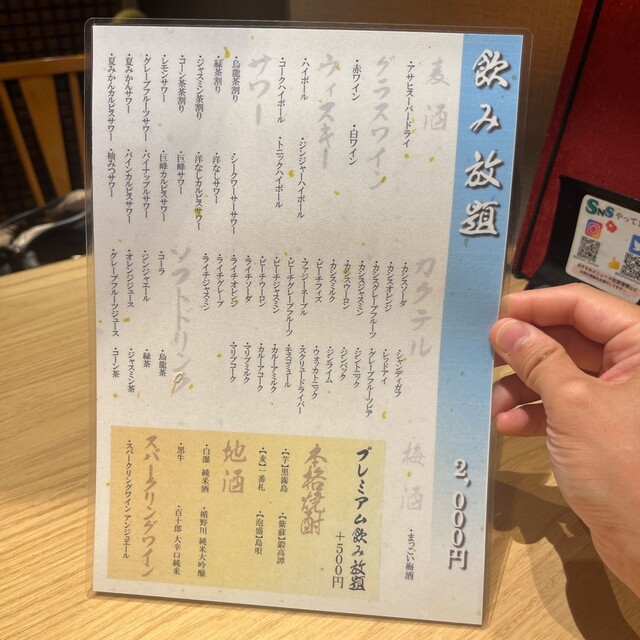 飲み放題
2,000円
麦酒
・アサヒスーパードライ
グラスワイン
・赤ワイン
・白ワイン
ウィスキー
・ハイボール
・ジンジャーハイボール
・コークハイボール
・トニックハイボール
サワー
・烏龍茶割り
・シークワーサーサワー
・緑茶割り
・洋なしサワー
・ジャスミン茶割り
・洋なしカルピスサワー
・コーン茶割り
・巨峰サワー
・レモンサワー
・巨峰カルピスサワー
・グレープフルーツサワー
・パイナップルサワー
・夏みかんサワー
・パインカルピスサワー
・夏みかんカルピスサワー
・柚みつサワー
カクテル
・カシスソーダ
・カシスオレンジ
・カシスグレープフルーツ
・カシスジャスミン
・カシスウーロン
・カシスミルク
・ピーチフィズ
・ファジーネーブル
・ピーチグレープフルーツ
・ピーチジャスミン
・ピーチウーロン
・ライチソーダ
・ライチオレンジ
・ライチグレープ
・ライチジャスミン
・シャンディガフ
・レッドアイ
・グレープフルーツビア
・ジントニック
・ジンバック
・ジンライム
・ウォッカトニック
・スクリュードライバー
・モスコミュール
・カルーアミルク
・カルーアコーク
・マリブミルク
・マリブコーク
ソフトドリンク
・コーラ
・烏龍茶
・ジンジャエール
・緑茶
・オレンジジュース
・ジャスミン茶
・グレープフルーツジュース
・コーン茶
梅酒
・まっこい梅酒
プレミアム飲み放題
+500円
本格焼酎
・【芋】黒霧島
・【紫蘇】鍛高譚
・【麦】一番札
・【泡盛】島唄
地酒
・白瀑 純米酒
・楯野川 純米大吟醸
・黒牛
・百十郎 大辛口純米
スパークリングワイン
・スパークリングワイン アンジュエール
SNSやって